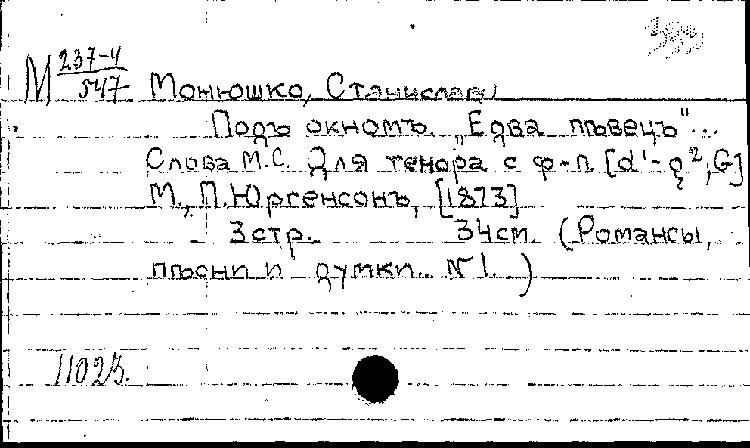 М 237-4
547
Монюшко, Станислав
Подъ окномъ. „Едва пѣвецъ“...
Слова М.С. Для тенора с ф-п [d'-g², G]
М., П. Юргенсонъ, [1873]
3 стр. 34 см. (Романсы,
пѣсни и думки. № 1.)
11023.